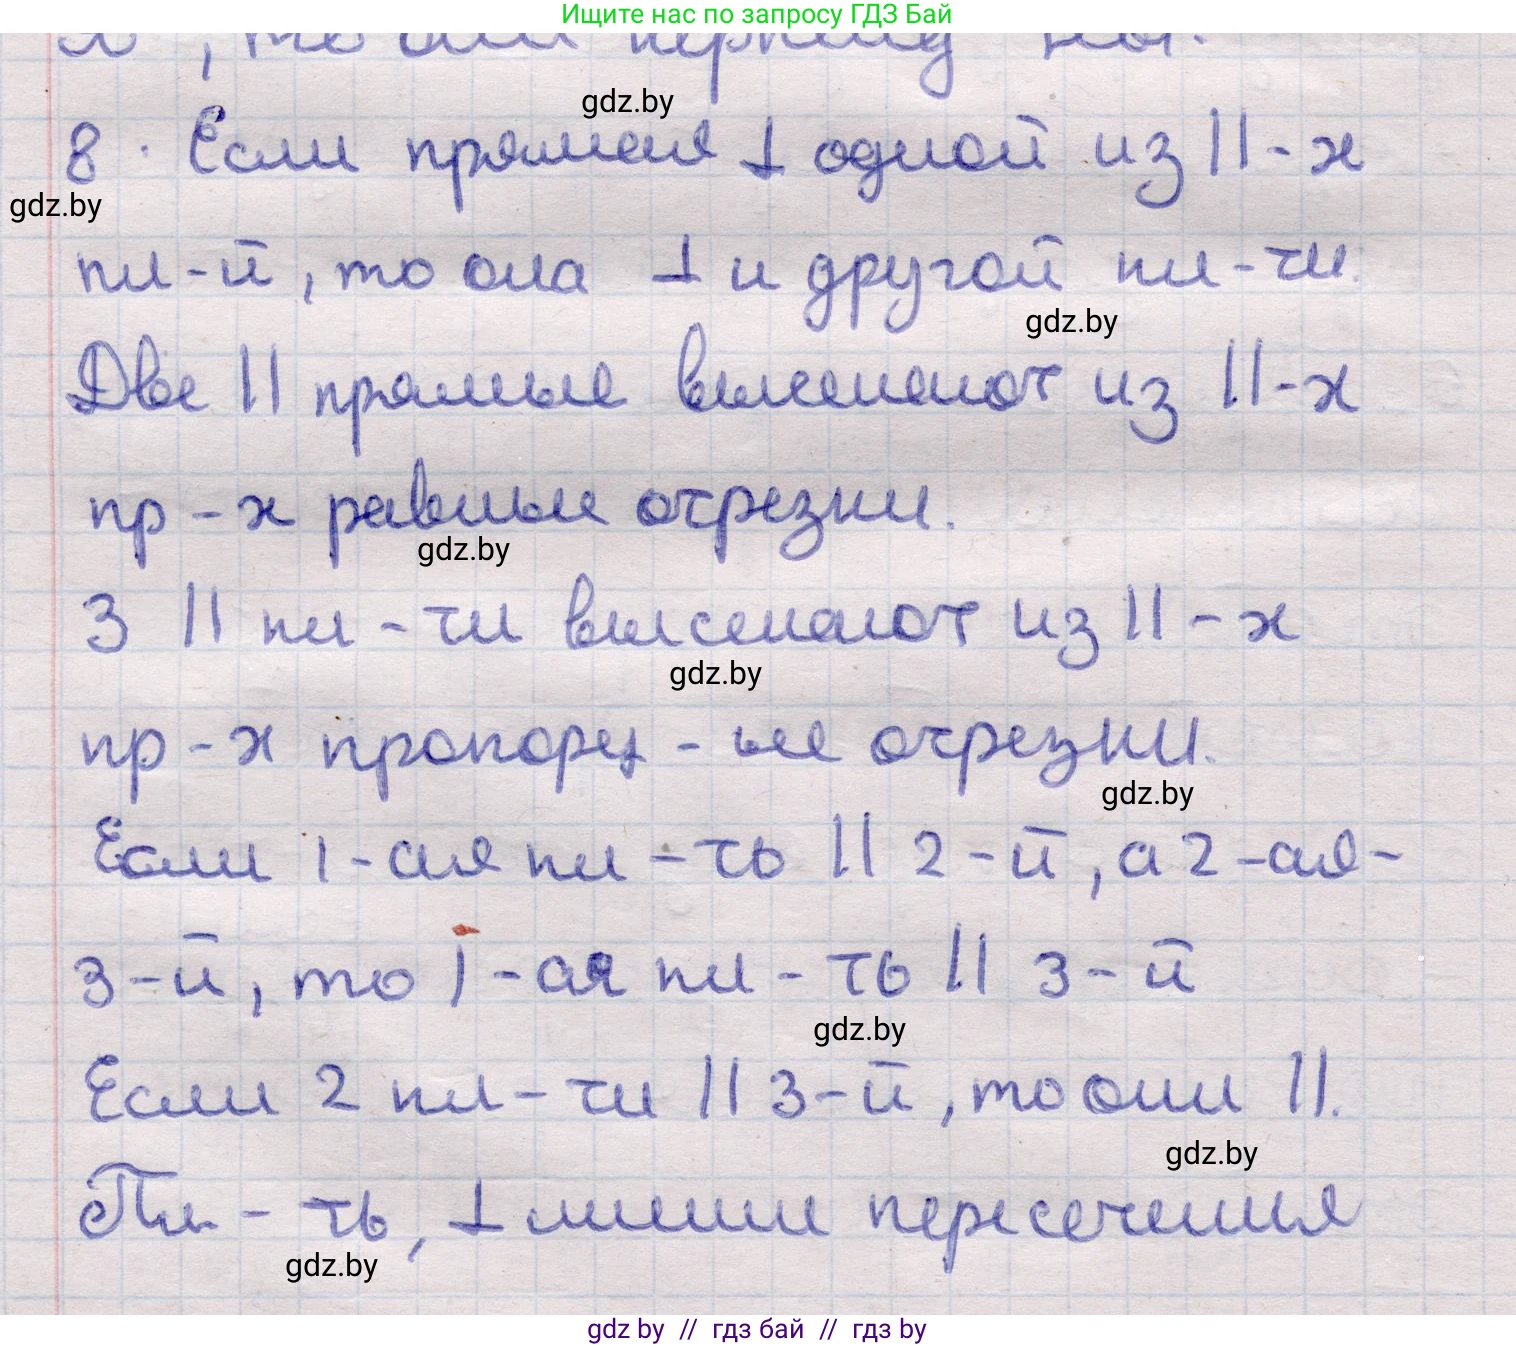 Ищите нас по запросу ГДЗ Бай
, то они перпенд
gdz.by
8. Если прямая ⊥ одной из ||-х
gdz.by
пл-й, то она ⊥ и другой пл-ти.
gdz.by
Две || прямые высекают из ||-х
пр-х равные отрезки.
gdz.by
3 || пл-ти высекают из ||-х
gdz.by
пр-х пропорц-ые отрезки.
gdz.by
Если 1-ая пл-ть || 2-й, а 2-ая-
3-й, то 1-ая пл-ть || 3-й
gdz.by
Если 2 пл-ти || 3-й, то они ||.
gdz.by
Пл-ть, ⊥ линии пересечения
gdz.by
gdz by // гдз бай // гдз by